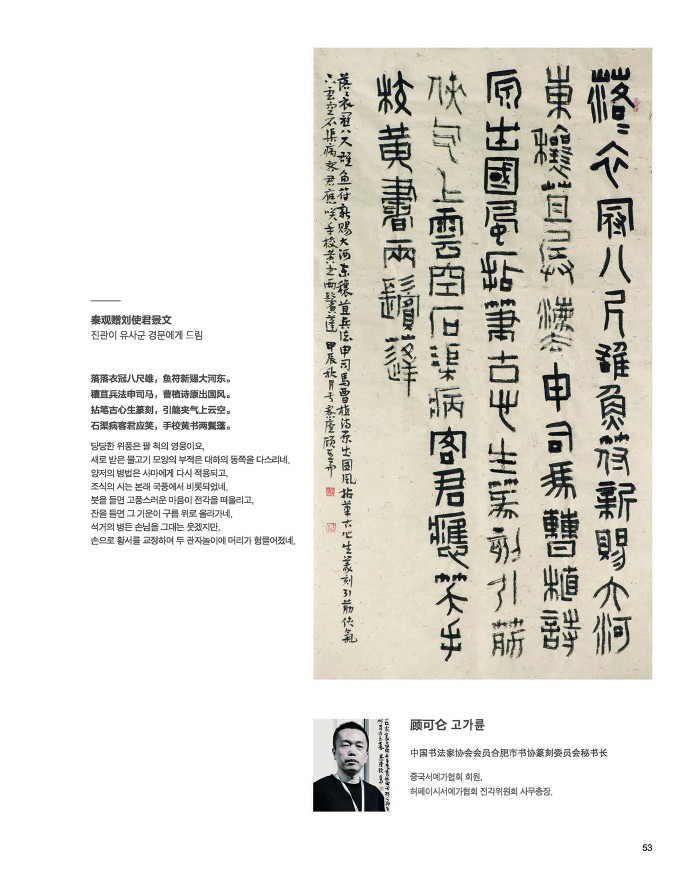 落〻衣冠八尺雄魚符新賜大河
東穰苴兵法申司馬曹植詩
原出國風拈筆古心生篆刻引觴
俠气上雲空石渠病客君應笑手
校黃書兩鬢蓬
落〻衣冠八尺雄魚符新賜大河東穰苴兵法申司馬曹植詩原出國風拈筆古心生篆刻引觴俠氣
上雲空石渠病客君應咲手校黃書兩鬢蓬 甲辰秋月于
秦观赠刘使君景文
진관이 유사군 경문에게 드림
落落衣冠八尺雄，鱼符新赐大河东。
穰苴兵法申司马，曹植诗原出国风。
拈笔古心生篆刻，引觞夹气上云空。
石渠病客君应笑，手校黄书两鬓蓬。
당당한 위풍은 팔 척의 영웅이요,
새로 받은 물고기 모양의 부적은 대하의 동쪽을 다스리네.
양저의 병법은 사마에게 다시 적용되고,
조식의 시는 본래 국풍에서 비롯되었네.
붓을 들면 고풍스러운 마음이 전각을 떠올리고,
잔을 들면 그 기운이 구름 위로 올라가네.
석거의 병든 손님을 그대는 웃겠지만,
손으로 황서를 교정하며 두 관자놀이에 머리가 헝클어졌네.
顾可仑 고가륜
中国书法家协会会员合肥市书协篆刻委员会秘书长
중국서예가협회 회원,
허페이시서예가협회 전각위원회 사무총장.
53